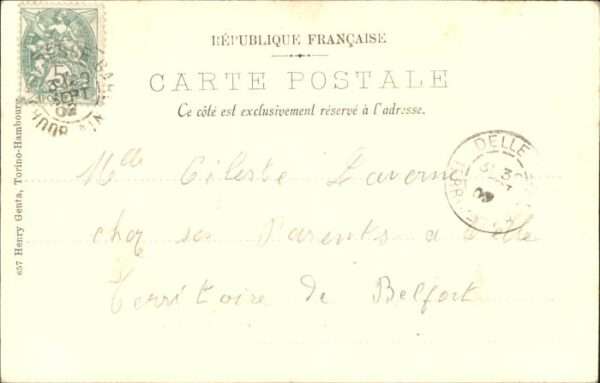 RÉPUBLIQUE FRANÇAISE
CARTE POSTALE
Ce côté est exclusivement réservé à l'adresse.
Mlle Céleste Taverne
chez ses Parents a Delle
Territoire de Belfort
657 Henry Genta, Torino-Hambourg
5
SEPT
02
DELLE
3